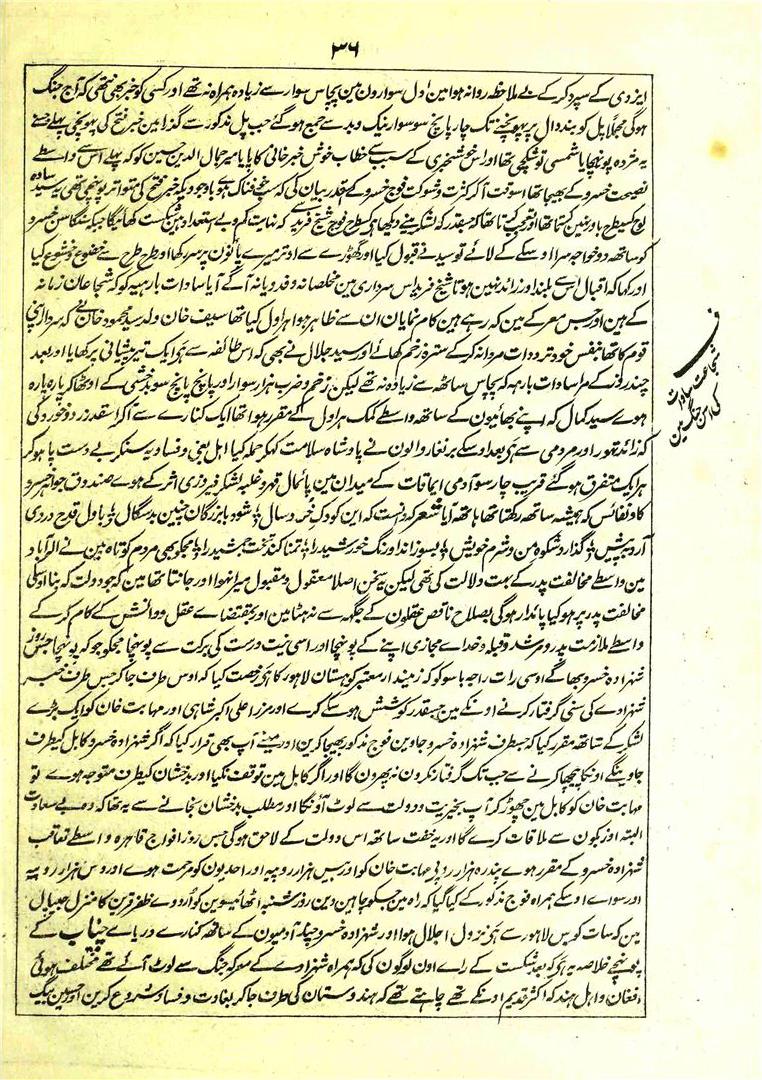 ۳۶
ایزدی کے سپرد کرکے بے ملاحظہ روانہ ہوا مین اول سوارون مین پچاس سوار سے زیادہ ہمراہ نہ تھے اور کسی کو خبر بھی نتھی کہ آج جنگ
ہوگی مجملًا پل کو بندوال پر پہونچنے تک چار پانچ سو سوار نیک و بد سے جمع ہوگئے جب پل مذکور سے گذرا مین خبر فتح کی پہونچی پہلے جسنے
یہ مژدہ پونہچایا شمسی توشکچی تھا اور اس خوشخبری کے سبب سے خطاب خوش خبر خانی کا پایا میر جمال الدین حسین کو کہ پہلے اس سے واسطے
نصیحت خسرو کے بھیجا تھا اسوقت آکر کثرت و شوکت فوج خسرو کے اسقدر بیان کی کہ سب خوفناک ہوئے باوجودیکہ خبر فتح کی متواتر پونہچی تھی یہ سید سادہ
لوح کسیطرح باور نہین کرتا تھا اور تعجب کرتا تھا کہ جسقدر کہ لشکر مینے دیکھا ہی کسطرح فوج شیخ فرید سے کہ نہایت کم و بے استعداد ہی شکست کھائیگا جبکہ سنگاسن خسرو
کو ساتھ دو خواجہ سرا اوسکے کے لائے تو سید نے قبول کیا اور گھوڑے سے اوتر میرے پانون پر سر رکھا اور طرح طرح سے خضوع و خشوع کیا
اور کہا کہ اقبال اس سے بلند اور زائد نہین ہوتا شیخ فرید اس سرداری مین مخلصانہ و فدویانہ آگے آیا سادات بارہہ کو کہ شجاعان زمانہ
کے ہین اور جس معرکے مین کہ رہے ہین کام نمایان ان سے ظاہر ہوا ہراول کیا تھا سیف خان ولد سید محمود خان نے کہ سردار اپنی
قوم کا تھا بنفس خود تردوات مردانہ کرکے سترہ زخم کھائے اور سید جلال نے بھی کہ اس طائفہ سے ہی ایک تیر پیشانی پر کھایا اور بعد
چند روز کے مرا سادات بارہہ کہ پچاس ساٹھ سے زیادہ نہ تھے لیکن زخم و ضرب ہزار سوار اور پانچ پانچ سو بدخشی کے اوٹھا کر پارہ پارہ
ہوے سید کمال کہ اپنے بھائیون کے ساتھ واسطے کمک ہراول کے مقرر ہوا تھا ایک کنارے سے آکر اسقدر زد و خورد کی
کہ زائد تہور اور مردمی سے ہی بعد اوسکے برنغار والون نے پادشاہ سلامت کہکر حملہ کیا اہل بغی و فساد یہ سنکر بے دست و پا ہوکر
ہر ایک متفرق ہوگئے قریب چار سو آدمی ایماقات کے میدان مین پائمال قہر و غلبہ لشکر فیروزی اثر کے ہوے صندوق جواہر خسرو
کا و نفائس کہ ہمیشہ ساتھ رکھتا تھا ہاتھ آیا شعر کہ دانست کہ این کودک خرد سال ؛ شود با بزرگان چنین بدسگال ؛ باول قدح دردی
آرد بپیش ؛ گذارد شکوہ من و شرم خویش ؛ بسوزاند اورنگ خورشید را ؛ تمنا کند تخت جمشید را ؛ مجکو بھی مردم کوتاہ بین نے الہ آباد
مین واسطے مخالفت پدر کے بہت دلالت کی تھی لیکن یہ سخن اصلا معقول و مقبول میرا نہوا اور جانتا تھا مین کہ جو دولت کہ بنا اوسکی
مخالفت پدر پر ہو کیا پائدار ہوگی بصلاح ناقص عقلون کے جگہہ سے نہ ہٹا مین اور بمقتضاے عقل و دانش کے کام کرکے
واسطے ملازمت پدر و مرشد و قبلہ و خداے مجازی اپنے کے پونہچا اور اسی نیت درست کی برکت سے پونہچا مجکو جو کہ پونہچا جس روز
شہزادہ خسرو بھاگے اوسی رات راجہ باسو کو کہ زمیندار معتبر کوہستان لاہور کا ہی رخصت کیا کہ اوس طرف جاکر جس طرف خبر
شہزادے کی سنی گرفتار کرنے اونکے مین جسقدر کوشش ہوسکے کرے اور مرزا علی اکبر شاہی اور مہابت خان کو ایک بڑے
لشکر کے ساتھ مقرر کیا کہ جسطرف شہزادہ خسرو جاوین فوج مذکور پیچھا کرین اور مینے آپ بھی قرار کیا کہ اگر شہزادہ خسرو کابل کیطرف
جاوینگے اونکا پیچھا کرنے سے جب تک گرفتار نکرون نہ پھرون گا اور اگر کابل مین توقف نکیا اور بدخشان کیطرف متوجہ ہوے تو
مہابت خان کو کابل مین چھوڑ کر آپ بخیریت و دولت سے لوٹ آؤنگا اور مطلب بدخشان نجانے سے یہ تھا کہ وہ بے سعادت
البتہ اوزبکون سے ملاقات کرے گا اور یہ خفت ساتھ اس دولت کے لاحق ہوگی جس روز افواج قاہرہ واسطے تعاقب
شہزادہ خسرو کے مقرر ہوے پندرہ ہزار روپے مہابت خان کو اور بیس ہزار روپیہ اور احدیون کو مرحمت ہوے اور دس ہزار روپیہ
اور سواے اوسکے ہمراہ فوج مذکور کے کیا گیا کہ راہ مین جسکو چاہین دین روز شنبہ اٹھائیسوین کو اردوے ظفر قرین کا منزل جیپال
مین کہ سات کوس لاہور سے ہی نزول اجلال ہوا اور شہزادہ خسرو چند آدمیون کے ساتھ کنارے دریاے چناب کے
پونہچے خلاصہ یہ ہی کہ بعد شکست کے راے اون لوگون کی کہ ہمراہ شہزادے کے معرکہ جنگ سے لوٹ آئے تھے مختلف ہوئی
افغان و اہل ہند کہ اکثر قدیم اونکے تھے چاہتے تھے کہ ہندوستان کی طرف جاکر بغاوت و فساد شروع کرین اور حسین بیگ
ف
شجاعت سادات
کی اس جنگ مین